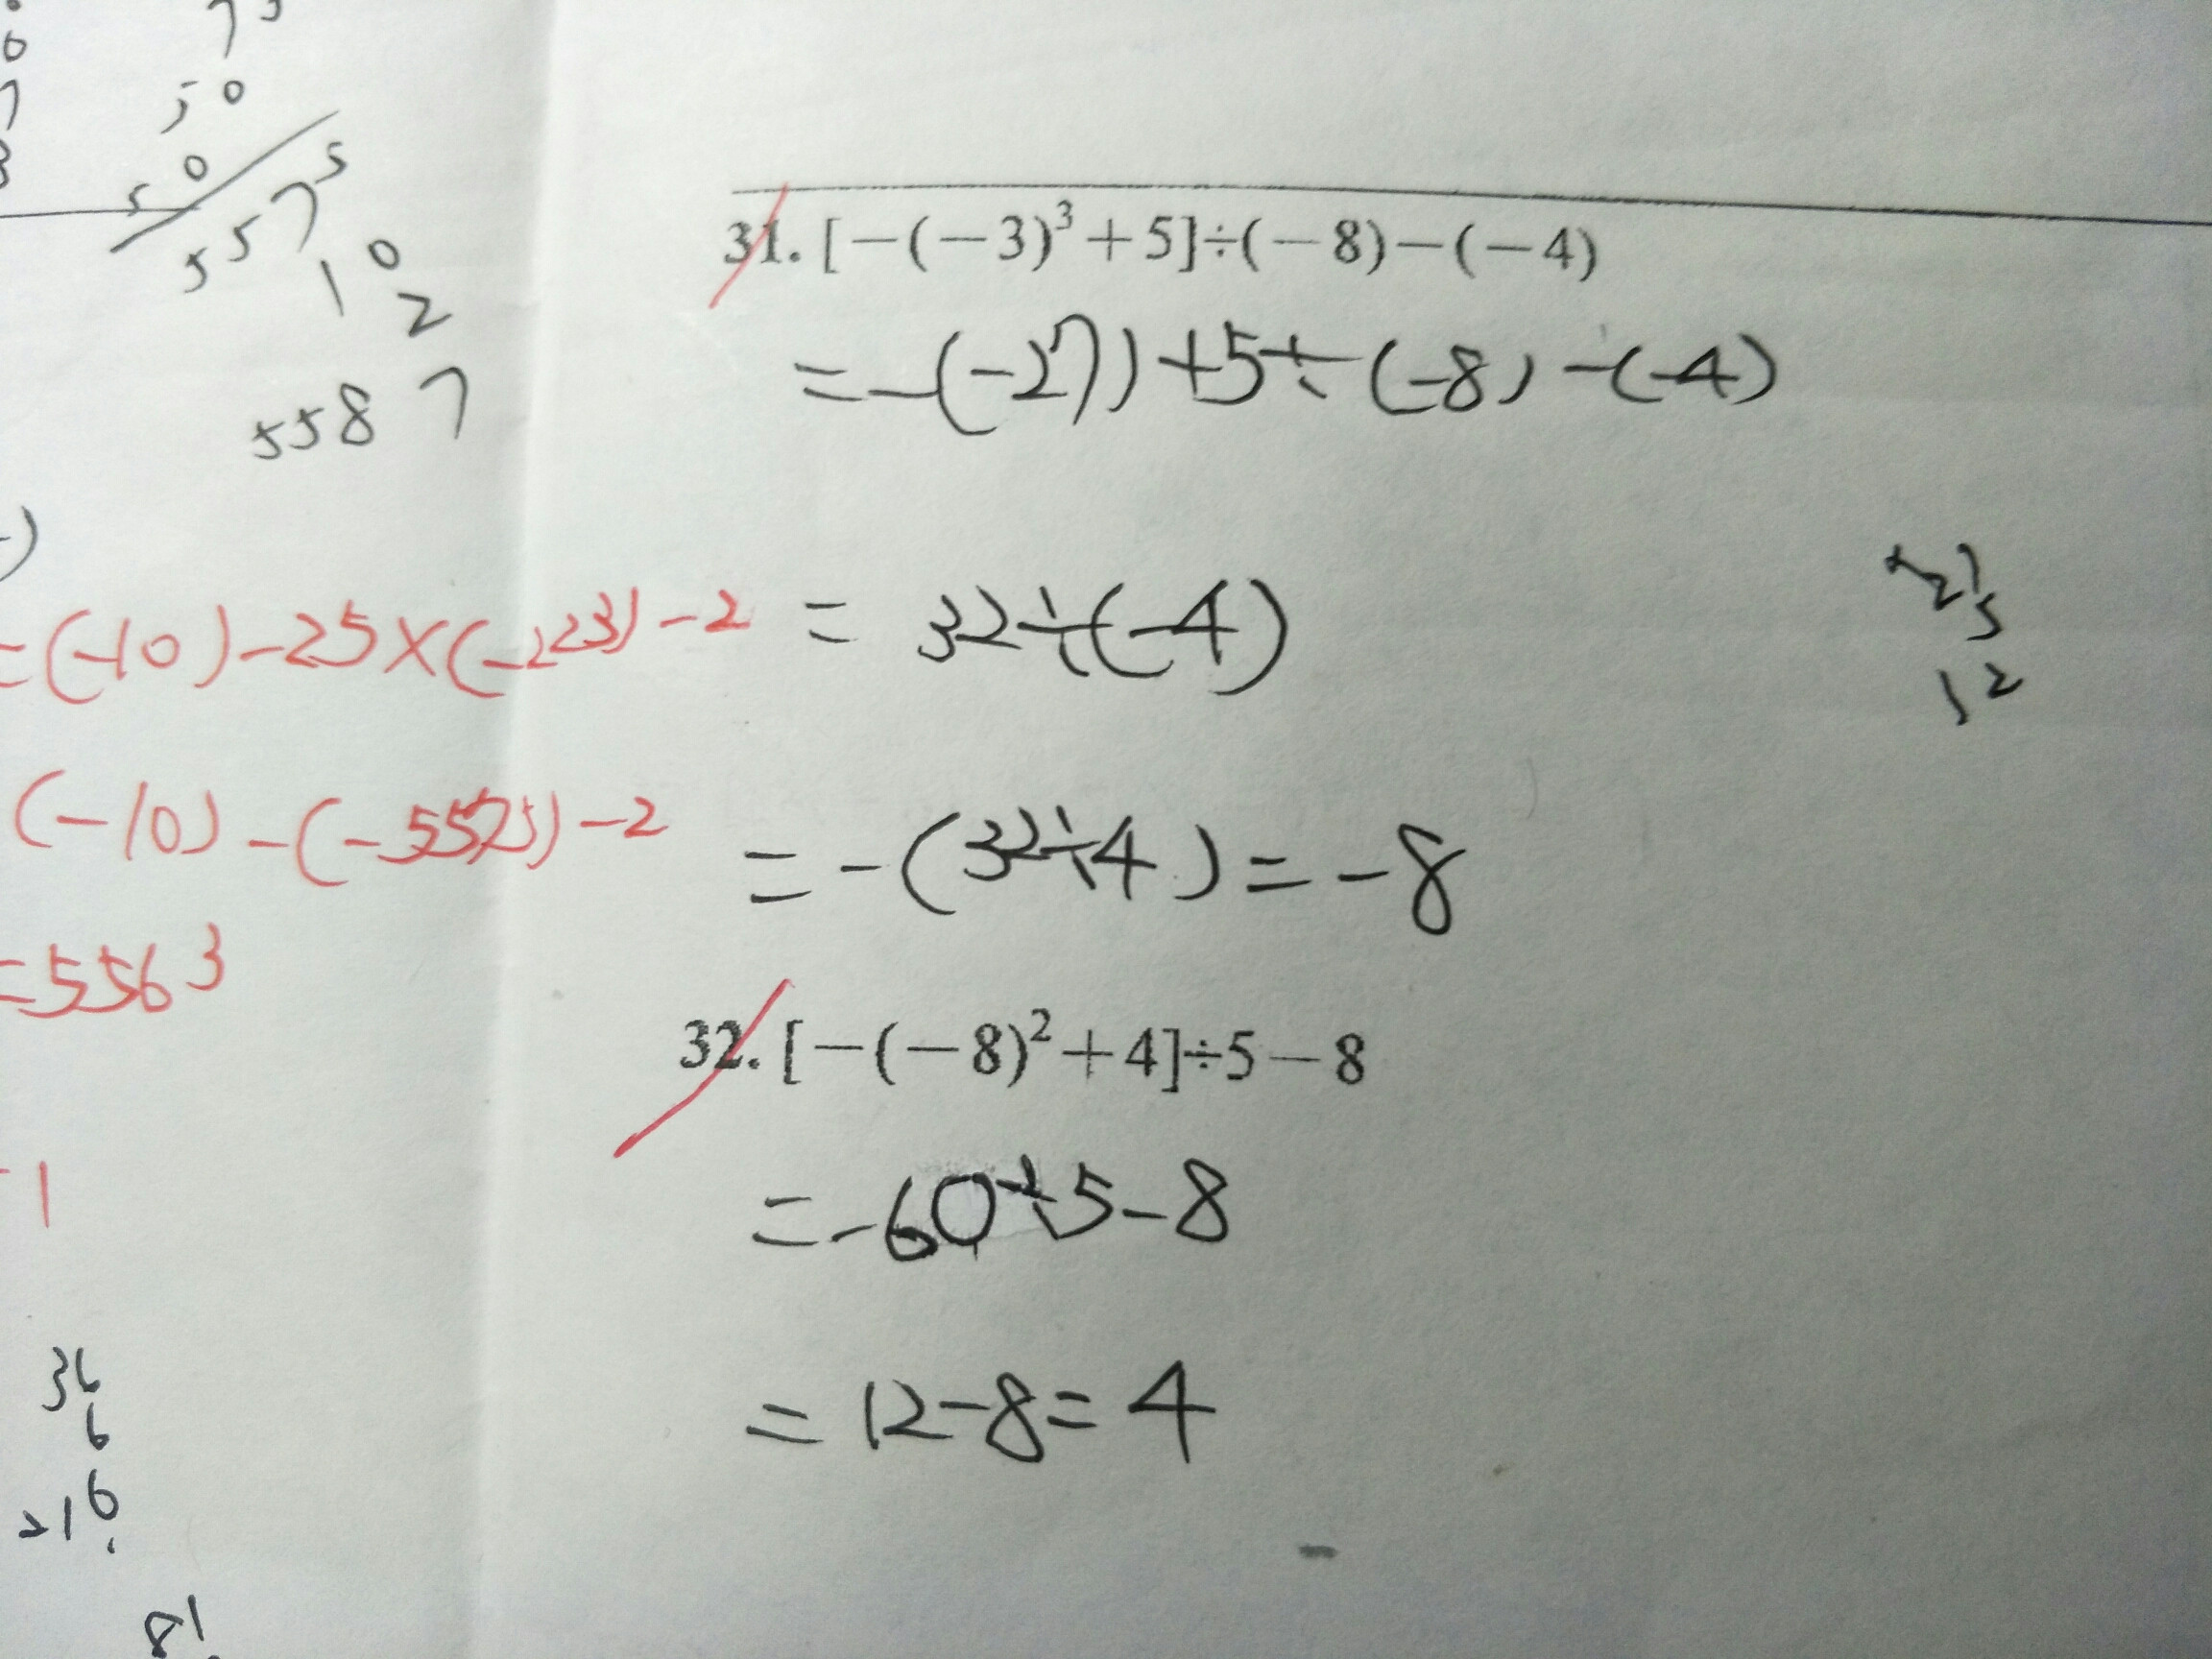 7
5 0
5 0
5 5 7 5
1 0
2
5 5 8 7
=(-10)-25×(-223)-2
(-10)-(-5575)-2
=5563
-1
36
6
216
81
31. [-(-3)³+5]÷(-8)-(-4)
=-(-27)+5÷(-8)-(-4)
=32÷(-4)
=-(32÷4)=-8
27
5
12
32. [-(-8)²+4]÷5-8
=-60÷5-8
=12-8=4